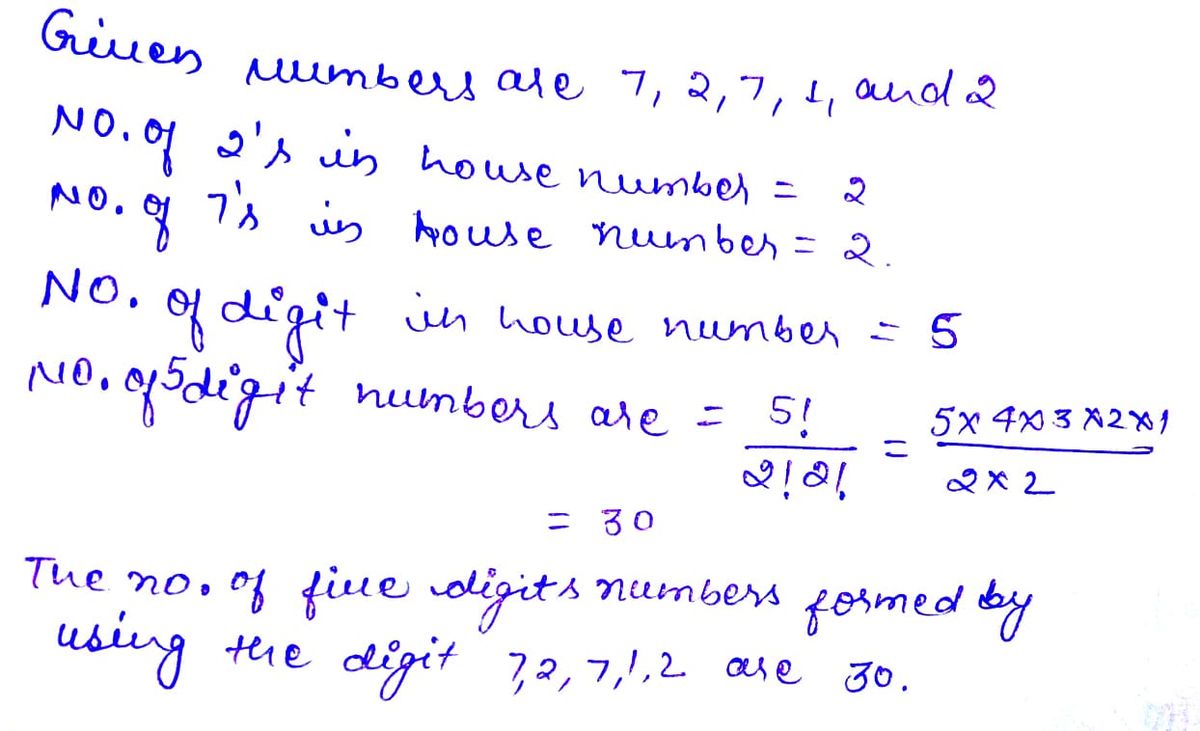 Given numbers are 7, 2, 7, 1, and 2
NO. of 2's in house number = 2
NO. of 7's in house number = 2.
NO. of digit in house number = 5
NO. of 5 digit numbers are = 5!/2!2! = 5×4×3×2×1/2×2
= 30
The no. of five digits numbers formed by
using the digit 7,2,7,1,2 are 30.